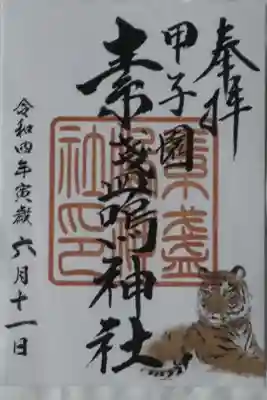 奉拝
甲子園
素盞嗚神社
令和四年寅歳六月十一日